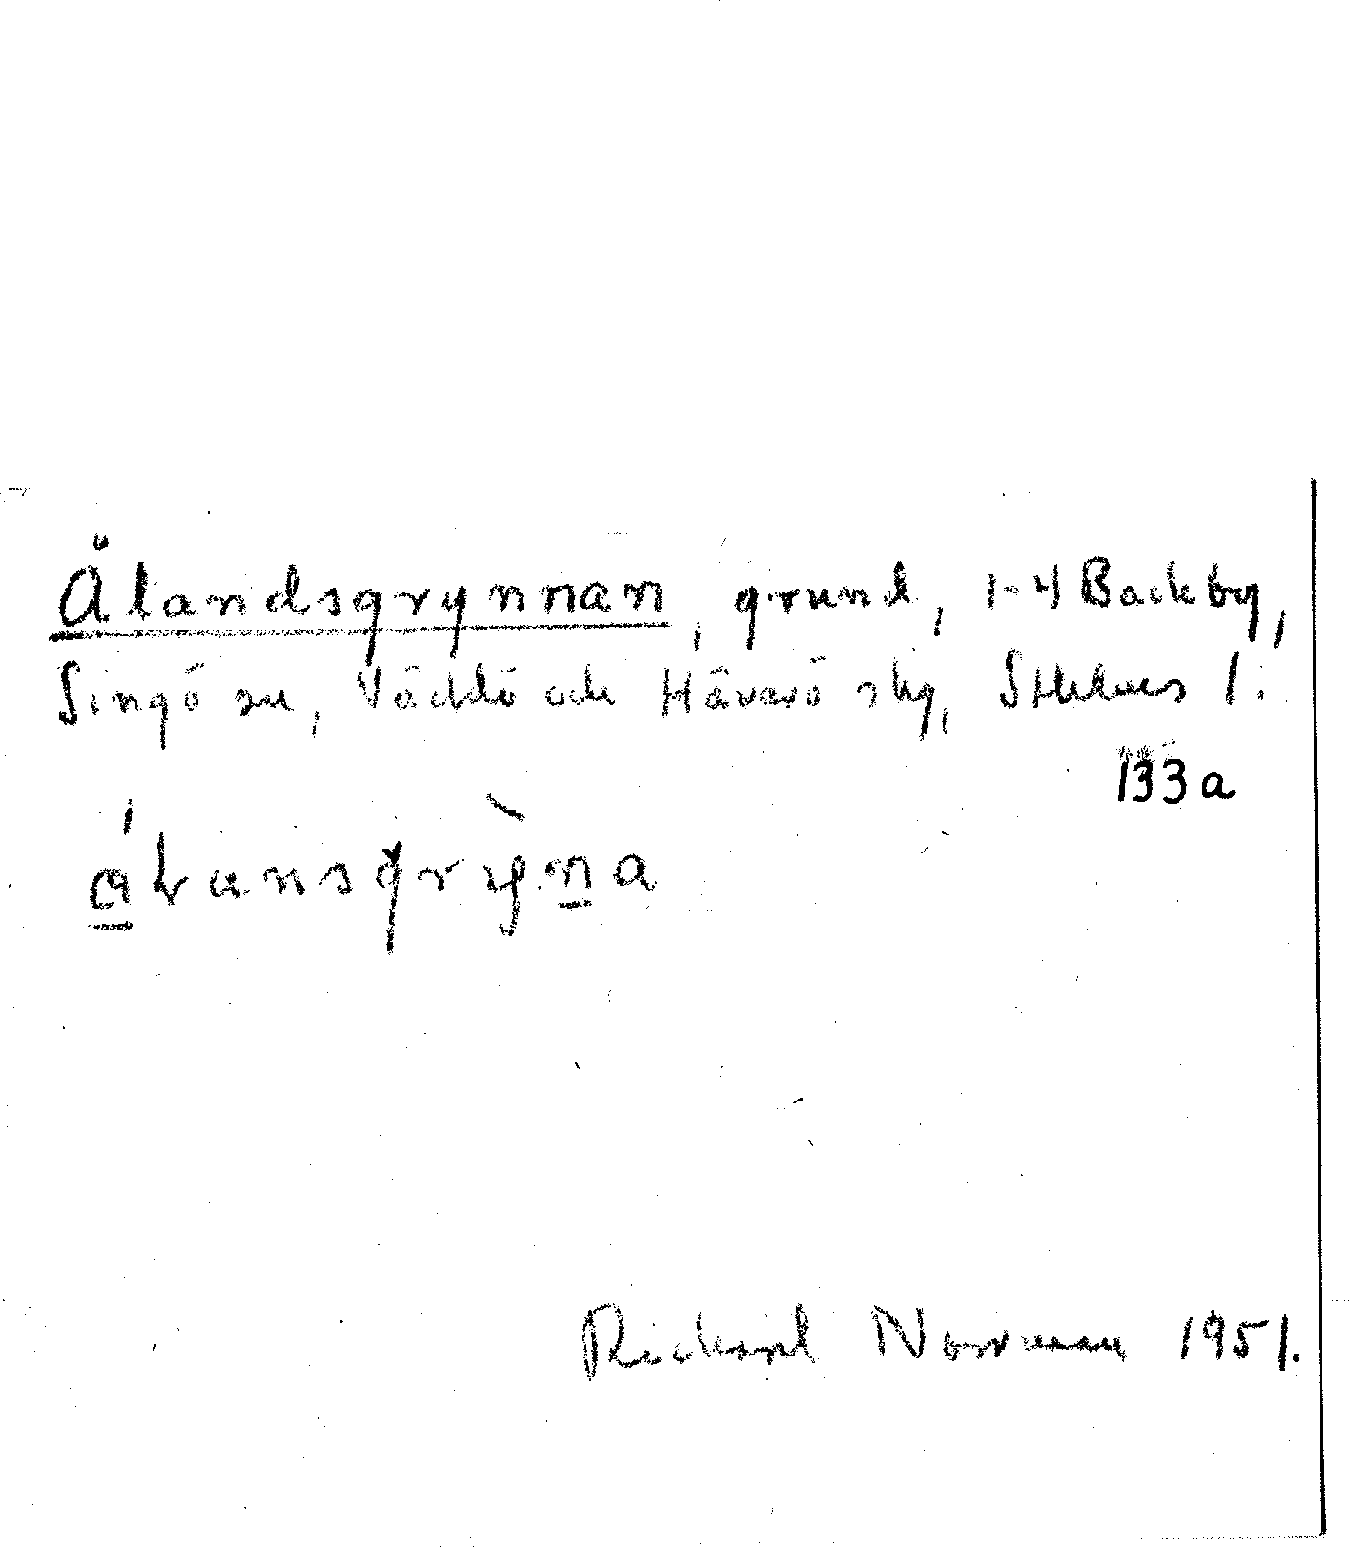 Ålandsgrynnan, grund, 1-4 Backby,
Singö sn, Väddö och Häverö skg, Sthlms l.
133a
Richard Norrman 1951.